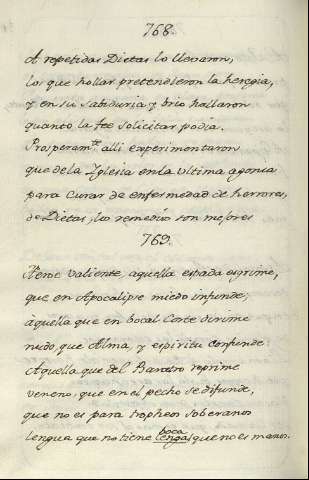 768.
A repetidas Dietas lo llevaron,
los que hollar pretendieron la heregia,
y en su sabiduria y brio hallaron
quanto la fee solicitar podia.
Prosperamte. alli experimentaron
que de la Iglesia en la ultima agonia
para curar de enfermedad de herrores,
de Dietas, los remedios son mejores
769.
Heroe valiente, aquella espada esgrime,
que en Apocalipse miedo infunde;
aquella que en bocal Corte dirime
nudo, que Alma, y espiritu confunde:
Aquella que del Baratro reprime
veneno, que en el pecho se difunde,
que no es para tropheos soberanos
lengua que no tiene boca lenga que no es manos.